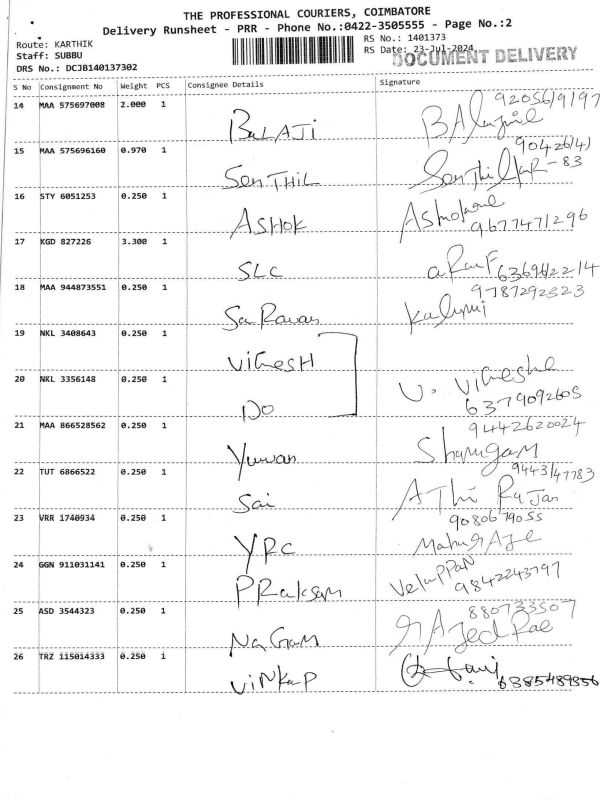 THE PROFESSIONAL COURIERS, COIMBATORE
Delivery Runsheet - PRR - Phone No.:0422-3505555 - Page No.:2
Route: KARTHIK RS No.: 1401373
Staff: SUBBU RS Date: 23-Jul-2024
DOCUMENT DELIVERY
DRS No.: DCJB140137302
S No Consignment No Weight PCS Consignee Details Signature
14 MAA 575697008 2.000 1 BALAJI 9205619197
15 MAA 575696160 0.970 1 SenTHIL
16 STY 6051253 0.250 1 ASHOK 9677471296
17 KGD 827226 3.300 1 SLC
18 MAA 944873551 0.250 1 SaRavan 9787292323
19 NKL 3408643 0.250 1 ViGesH
20 NKL 3356148 0.250 1 DO V. ViGeshe 6379092605
21 MAA 866528562 0.250 1 Yuvvan 9442620024 Shanugam
22 TUT 6866522 0.250 1 Sai 9443147783 AThi RaJan
23 VRR 1740934 0.250 1 YRC 9080679055
24 GGN 911031141 0.250 1 PRaksam VeluPPaN 9842243797
25 ASD 3544323 0.250 1 NaGam 880733507
26 TRZ 115014333 0.250 1 ViNKaP 6385489856